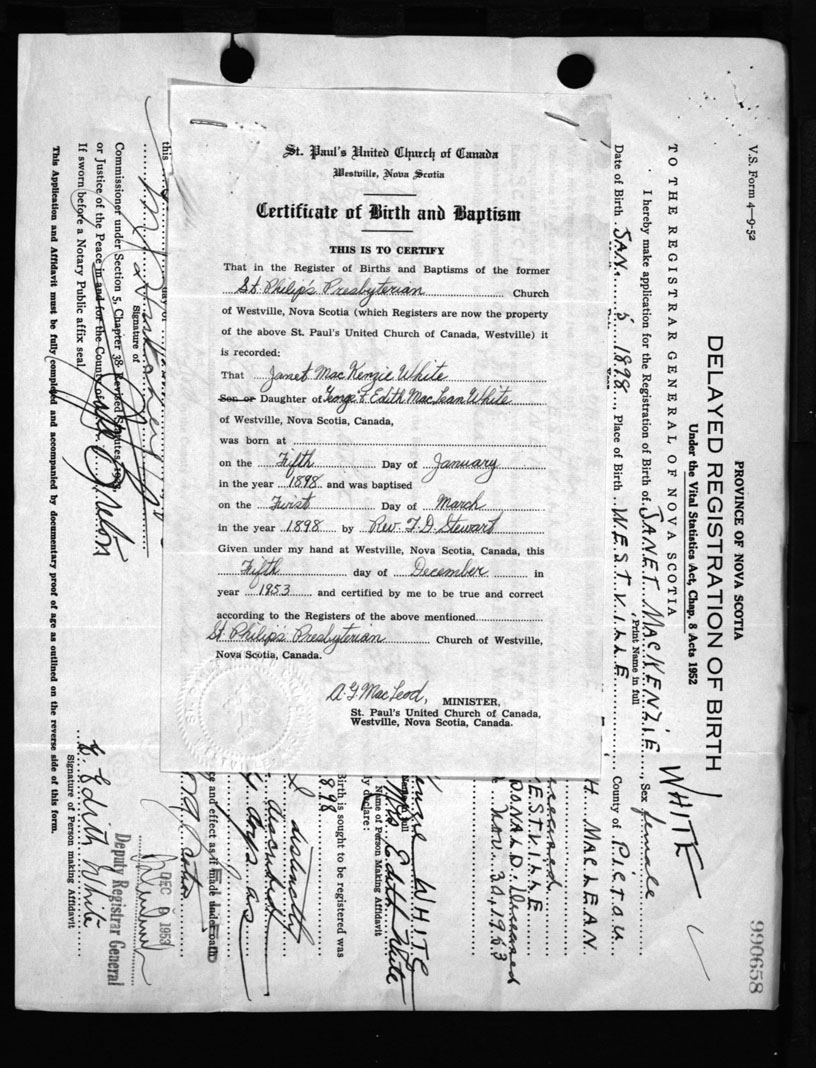 St. Paul's United Church of Canada
Westville, Nova Scotia
Certificate of Birth and Baptism
THIS IS TO CERTIFY
That in the Register of Births and Baptisms of the former
St. Philip's Presbyterian Church
of Westville, Nova Scotia (which Registers are now the property
of the above St. Paul's United Church of Canada, Westville) it
is recorded:
That Janet MacKenzie White
Son or Daughter of George & Edith MacLean White
of Westville, Nova Scotia, Canada,
was born at
on the Fifth Day of January
in the year 1898 and was baptised
on the First Day of March
in the year 1898 by Rev. T. D. Stewart
Given under my hand at Westville, Nova Scotia, Canada, this
Fifth day of December in
year 1953 and certified by me to be true and correct
according to the Registers of the above mentioned
St. Philip's Presbyterian Church of Westville,
Nova Scotia, Canada.
A. G. MacLeod, MINISTER,
St. Paul's United Church of Canada,
Westville, Nova Scotia, Canada.
V.S. Form 4—9-52
990658
PROVINCE OF NOVA SCOTIA
DELAYED REGISTRATION OF BIRTH
Under the Vital Statistics Act, Chap. 8 Acts 1952
TO THE REGISTRAR GENERAL OF NOVA SCOTIA
I hereby make application for the Registration of Birth of JANET MACKENZIE WHITE, Sex female
Print Name in full
Date of Birth JAN. 5 1898, Place of Birth WESTVILLE County of PICTOU
H. MACLEAN
ESTVILLE
DONALD. Deceased
NOV. 30, 1953
WHITE
Edith White
Name of Person Making Affidavit
declare:
Birth is sought to be registered was
1898
distinctly
as
and effect as if made under oath
this
Signature of
Commissioner under Section 5, Chapter 38, Revised Statutes,
or Justice of the Peace in and for the County of Cape Breton
If sworn before a Notary Public affix seal
E. Edith White
Signature of Person making Affidavit
DEC 9 1953
Deputy Registrar General
This Application and Affidavit must be fully completed and accompanied by documentary proof of age as outlined on the reverse side of this form.